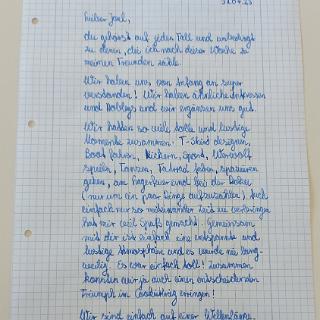 Lieber Joel,
du gehörst auf jeden Fall und unbedingt
zu denen, die ich nach dieser Woche zu
meinen Freunden zähle.
Wir haben uns von Anfang an super
verstanden! Wir haben ähnliche Interessen
und Hobbys und wir ergänzen uns gut.
Wir hatten so viele tolle und lustige
Momente zusammen. T-Shirt designen,
Boot fahren, Klettern, Sport, Werwolf
spielen, Tanzen, Fahrrad fahren, spazieren
gehen, am Lagerfeuer und bei der
(nur um ein paar Dinge aufzuzählen) Auch
einfach nur so miteinander Zeit zu verbringen
hat mir viel Spaß gemacht. Gemeinsam
mit dir ist einfach eine entspannte und
lustige Atmosphäre und es wurde nie lang-
weilig. Es war einfach toll! Zusammen
konnten wir ja auch einen entscheidenden
Triumph im erringen!
Wir sind einfach auf einer Wellenlänge